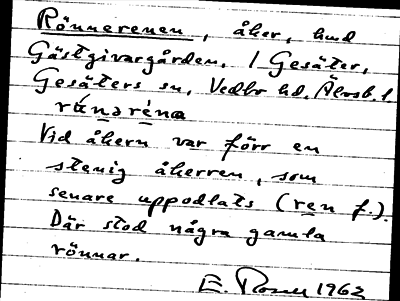 Rönnerenen, åker, hmd
Gästgivargården, 1 Gesäter,
Gesäters sn, Vedbo hd, Älvsb. l.
rúnəréna
Vid åkern var förr en
stenig åkerren, som
senare uppodlats (ren f.).
Där stod några gamla
rönnar.
E. 1962